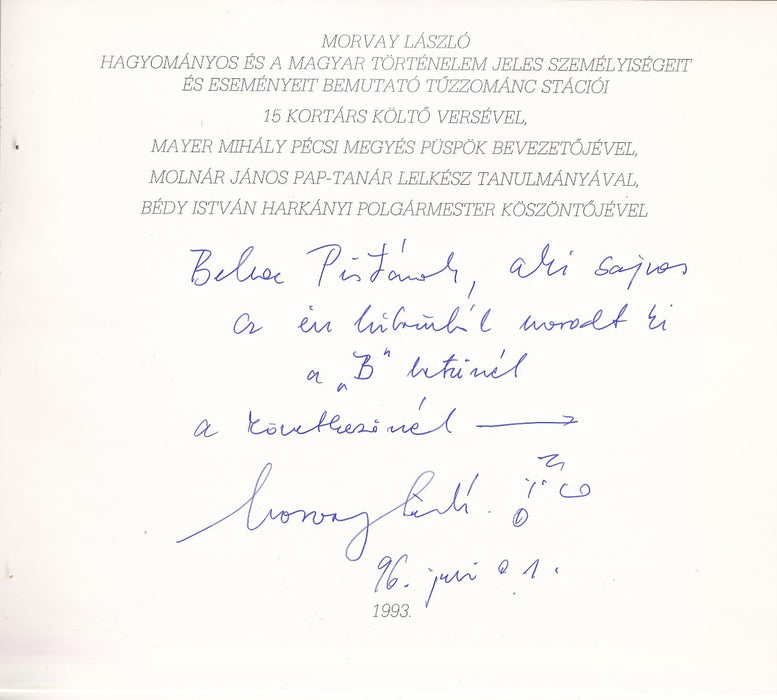 MORVAY LÁSZLÓ
HAGYOMÁNYOS ÉS A MAGYAR TÖRTÉNELEM JELES SZEMÉLYISÉGEIT
ÉS ESEMÉNYEIT BEMUTATÓ TŰZZOMÁNC STÁCIÓI
15 KORTÁRS KÖLTŐ VERSÉVEL,
MAYER MIHÁLY PÉCSI MEGYÉS PÜSPÖK BEVEZETŐJÉVEL,
MOLNÁR JÁNOS PAP-TANÁR LELKÉSZ TANULMÁNYÁVAL,
BÉDY ISTVÁN HARKÁNYI POLGÁRMESTER KÖSZÖNTŐJÉVEL
Pistának, aki sajnos
az én hibámból maradt ki
a „B" betűnél
a következőnél
Morvay László.
96. juni 01.
1993.